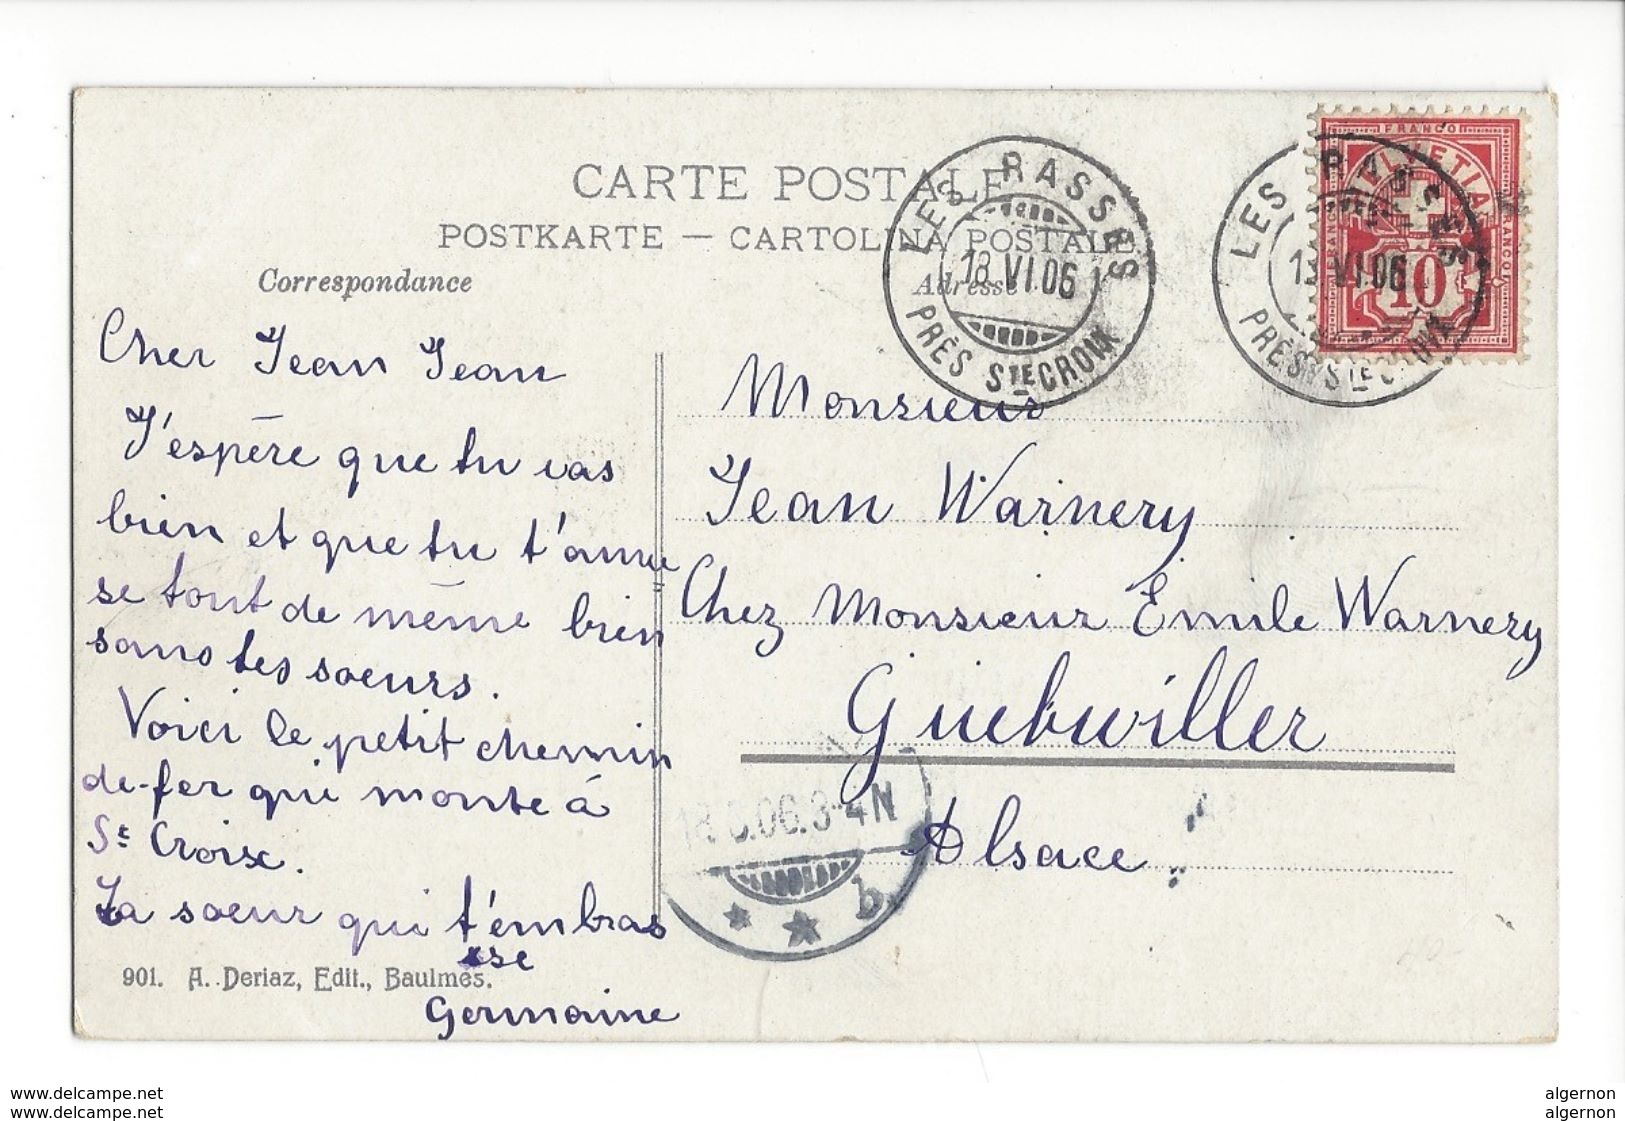 CARTE POSTALE
POSTKARTE — CARTOLINA POSTALE
Correspondance
Adresse
LES RASSES
13 VI.06
PRÈS STE CROIX
LES RASSES
13 VI.06
PRÈS STE CROIX
FRANCO
HELVETIA
FRANCO
10
Cher Jean Jean
J'espère que tu vas
bien et que tu t'amu
se tout de même bien
sans tes soeurs.
Voici le petit chemin
de-fer qui monte à
St Croix.
Ta soeur qui t'embras
sse
Germaine
901. A. Deriaz, Edit., Baulmes.
Monsieur
Jean Warnery
Chez Monsieur Emile Warnery
Guebwiller
Alsace
.06.3-4N
b.
delcampe.net
delcampe.net
algernon
algernon